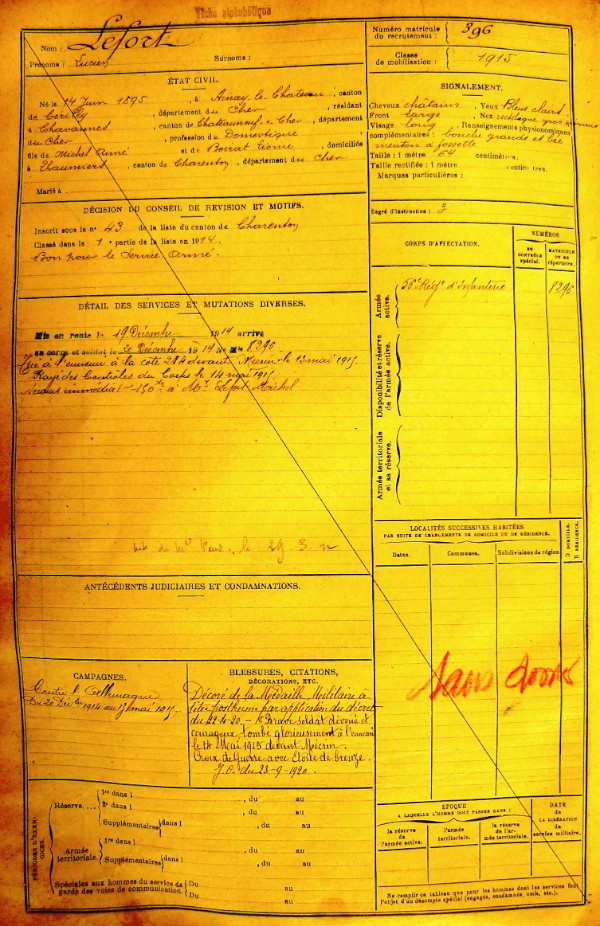 Fiche alphabétique
Nom : Lefort
Prénoms : Lucien Surnoms :
ÉTAT CIVIL.
Né le 14 Juin 1895, à Ainay-le-Château, canton
de Cérilly, département du Cher, résidant
à Chavannes, canton de Chateauneuf s/ Cher, département
du Cher, profession de Domestique
fils de Michel Aimé et de Boirat Léonie, domiciliés
à Thaumiers, canton de Charenton, département du Cher
Marié à
DÉCISION DU CONSEIL DE REVISION ET MOTIFS.
Inscrit sous le n° 43 de la liste du canton de Charenton
Classé dans la 1e partie de la liste en 1914.
Bon pour le Service Armé.
DÉTAIL DES SERVICES ET MUTATIONS DIVERSES.
Mis en route le 19 Décembre 1914 arrivé
au corps et soldat le 20 Décembre 1914 N° Mle 8296
Tué à l'ennemi à la côte 284 devant le 13 mai 1915.
Rayé des Contrôles du Corps le 14 mai 1915.
Secours immédiat 150 frs à Mr Lefort Michel
le 29.3.
ANTÉCÉDENTS JUDICIAIRES ET CONDAMNATIONS.
CAMPAGNES.
Contre l'Allemagne
Du 20 Déc bre 1914 au 13 mai 1915.
BLESSURES, CITATIONS,
DÉCORATIONS, ETC.
Décoré de la Médaille Militaire à
titre posthume par application du décret
du 22-4-20. - Brave soldat dévoué et
courageux tombé glorieusement à l'ennemi
le 14 Mai 1915 devant
Croix de Guerre avec Etoile de bronze.
J.O. du 23-9-1920.
PÉRIODES D'EXERCICES.
Réserve.... 1re dans l , du au
2e dans l , du au
Supplémentaires dans l , du au
Armée territoriale. 1re dans l , du au
Supplémentaires dans l , du au
Spéciales aux hommes du service de garde des voies de communication. Du au
Du au
Numéro matricule du recrutement : 396
Classe de mobilisation : 1915
SIGNALEMENT.
Cheveux châtains. Yeux Bleus clairs
Front large Nez rectiligne gros
Visage long. Renseignements physionomiques
complémentaires : bouche grande
menton à fossette
Taille : 1 mètre 64 centimètres.
Taille rectifiée : 1 mètre centimètres.
Marques particulières :
Degré d'instruction : 3
CORPS D'AFFECTATION.
NUMÉROS
AU CONTRÔLE spécial.
MATRICULE OU AU répertoire.
Armée active.
56e Régt d'Infanterie 8296
Disponibilité et réserve de l'armée active.
Armée territoriale et sa réserve.
LOCALITÉS SUCCESSIVES HABITÉES
PAR SUITE DE CHANGEMENTS DE DOMICILE OU DE RÉSIDENCE.
Dates. Communes. Subdivisions de région
D DOMICILE.
R RÉSIDENCE.
sans droits
ÉPOQUE
A LAQUELLE L'HOMME DOIT PASSER DANS :
la réserve de l'armée active.
l'armée territoriale.
la réserve de l'armée territoriale.
DATE
DE LA LIBÉRATION
du service militaire.
Ne remplir ce tableau que pour les hommes dont les services font
l'objet d'un décompte spécial (engagés, condamnés, omis, etc.).